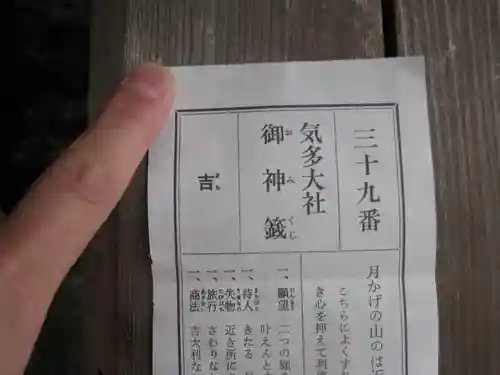 三十九番
気多大社
御神籤
おみくじ
吉
きち
月かげの山のは
こちらによくす
き心を抑えて利
一、願望 二つの願
叶えんと
一、待人 きたる
一、失物 近き所に
一、旅行 さわりな
一、商法 吉大利な